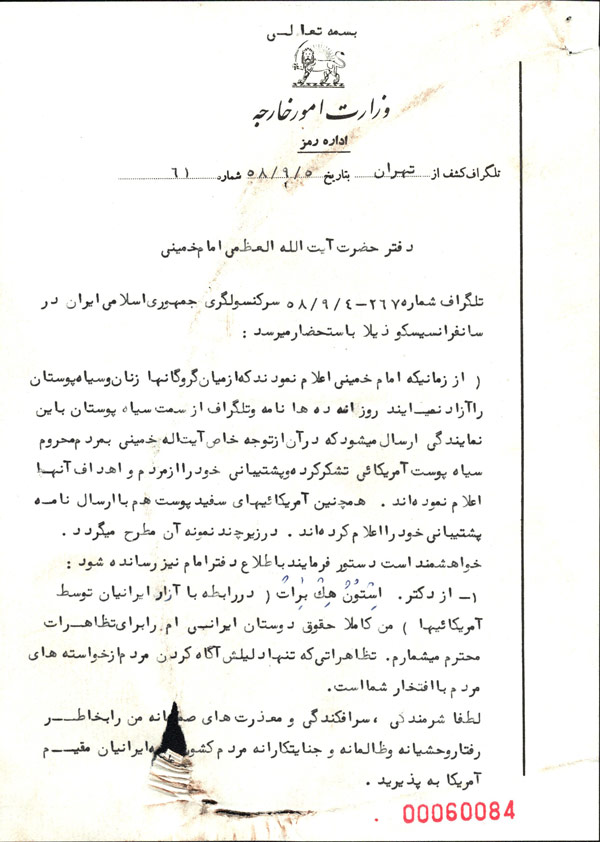 بسمه تعالی
وزارت امور خارجه
اداره رمز
تلگراف کشف از تهران بتاریخ ۵۸/۹/۵ شماره ۶۱
دفتر حضرت آیت الله العظمی امام خمینی
تلگراف شماره ۲۶۷-۵۸/۹/۴ سرکنسولگری جمهوری اسلامی ایران در
سانفرانسیسکو ذیلا باستحضار میرسد :
( از زمانیکه امام خمینی اعلام نمودند که از میان گروگانها زنان و سیاه پوستان
را آزاد نمیـایند روزانه ده ها نامه و تلگراف از سمت سیاه پوستان باین
نمایندگی ارسال میشود که در آن از توجه خاص آیت اله خمینی بمردم محروم
سیاه پوست آمریکائی تشکر کرده و پشتیبانی خود را از مردم و اهداف آنهـا
اعلام نموده اند . همچنین آمریکائیهای سفید پوست هم با ارسال نامـه
پشتیبانی خود را اعلام کرده اند . در زیر چند نمونه آن مطرح میگردد .
خواهشمند است دستور فرمایند باطلاع دفتر امام نیز رسانده شود :
۱- از دکتر . اِسْتوُنْ هِکْ بِراتْ ( در رابطه با آزار ایرانیان توسط
آمریکائیها ) من کاملا حقوق دوستان ایرانـی ام را برای تظاهـرات
محترم میشمارم . تظاهراتی که تنها دلیلش آگاه کردن مردم از خواسته های
مردم با افتخار شما است .
لطفا شرمندگی ، سرافکندگی و معذرت های من را بخاطـر
رفتار وحشیانه و ظالمانه و جنایتکارانه مردم ایرانیان مقیـم
آمریکا به پذیرید .
00060084